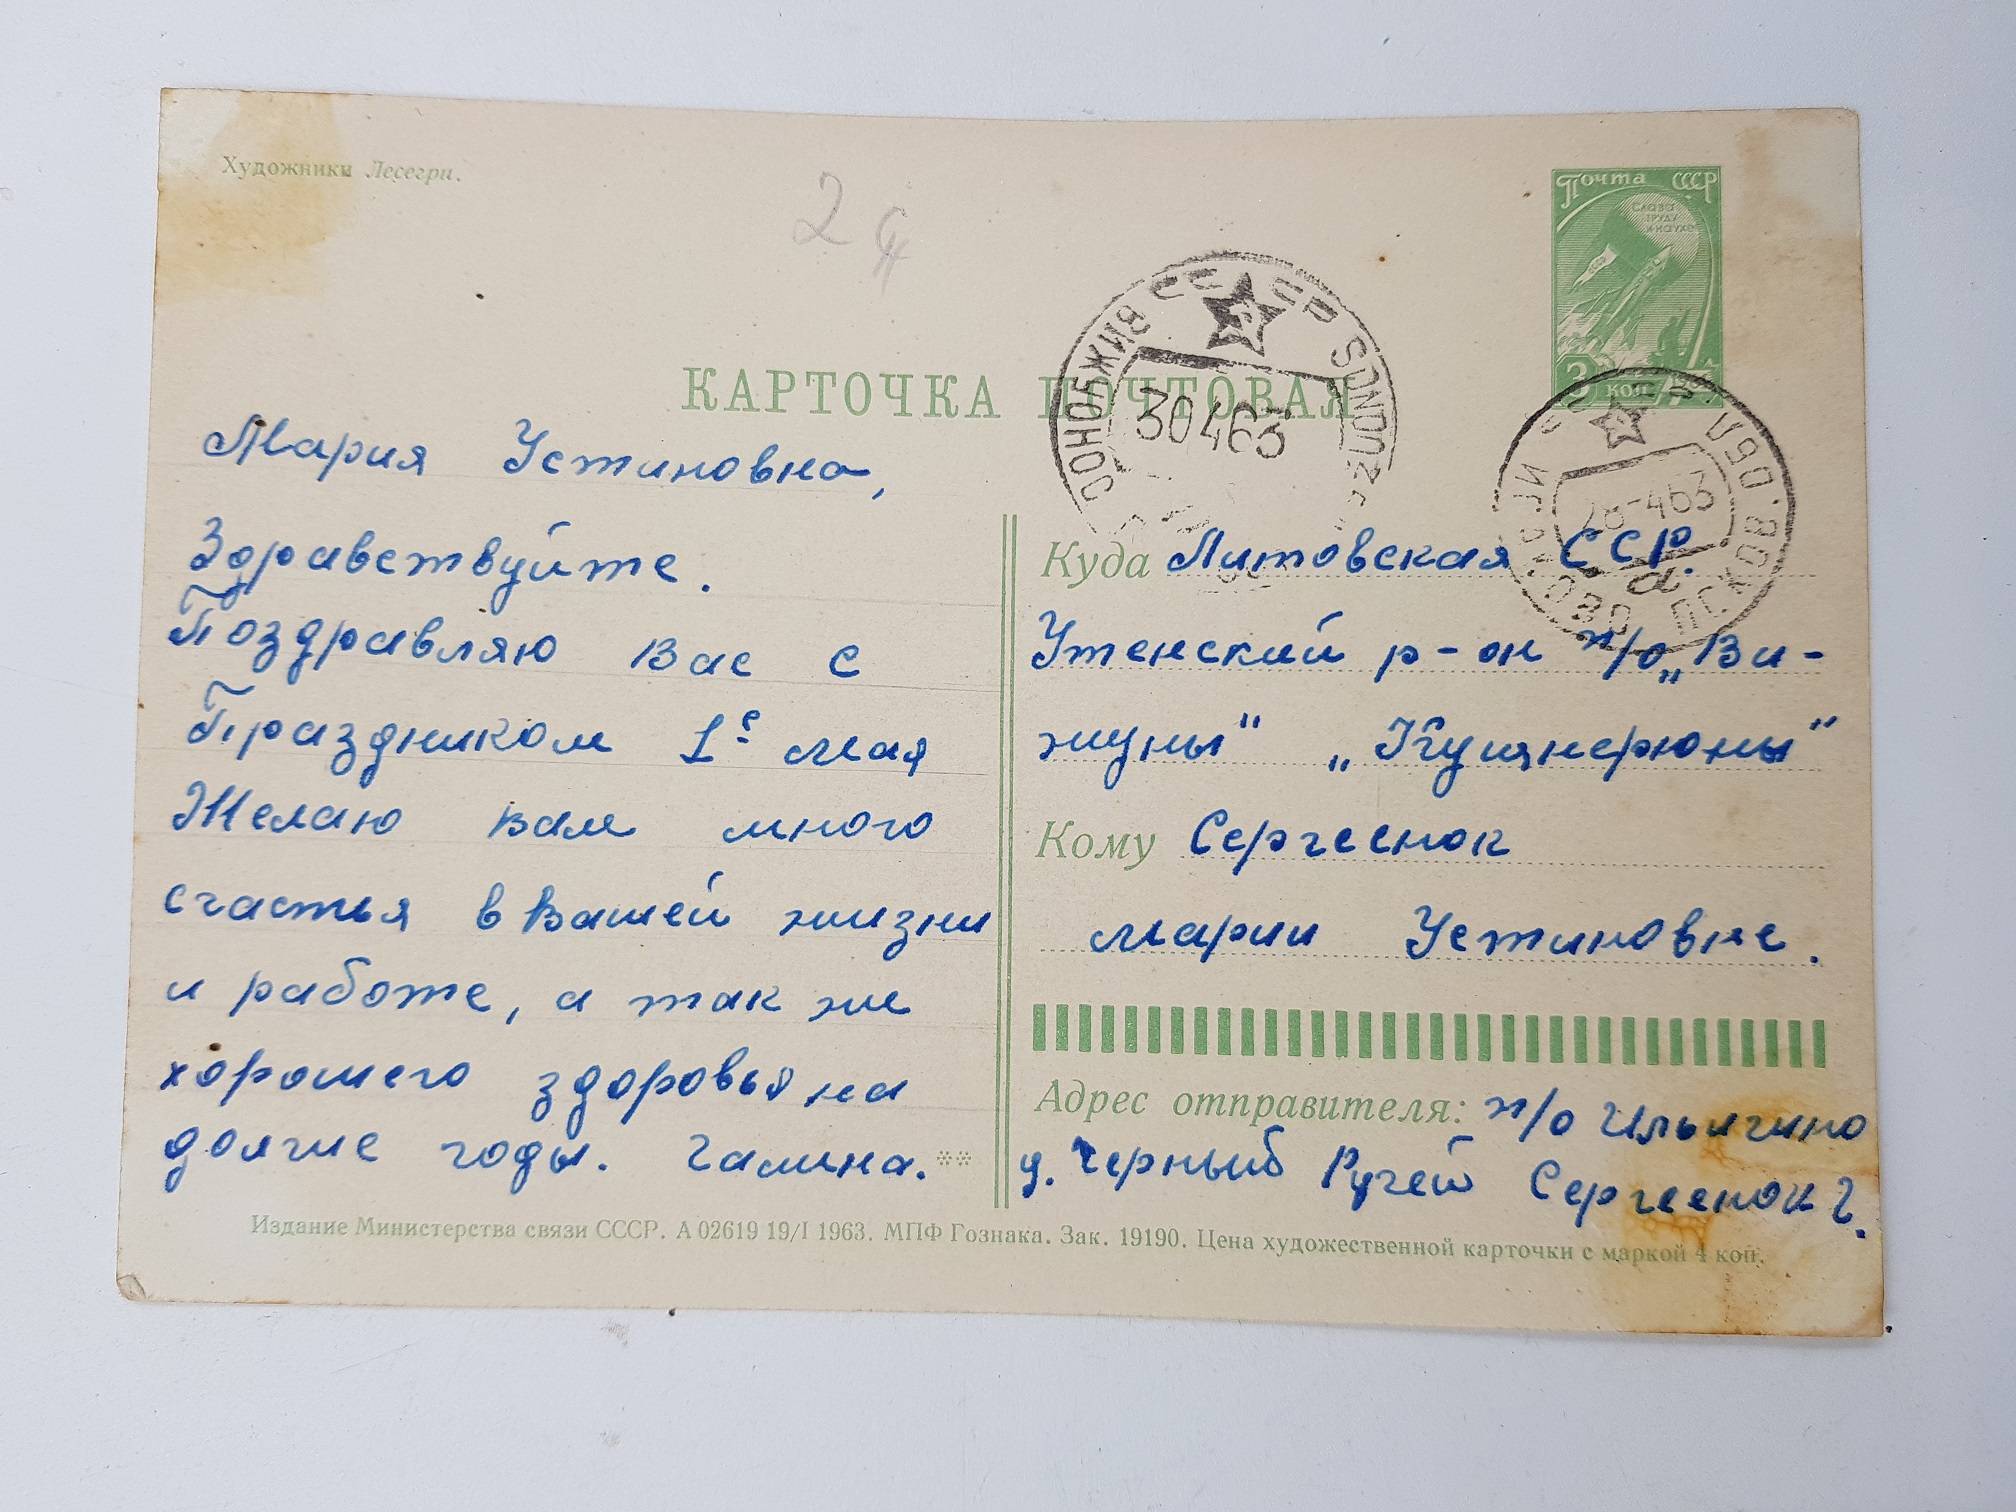 Художники Лесегри.
2
Почта СССР
СЛАВА
ТРУДУ
И НАУКЕ
3 коп
КАРТОЧКА ПОЧТОВАЯ
30 4 63
28-4 63
ПСКОВ. ОБЛ.
Мария Устиновна,
Здравствуйте.
Поздравляю Вас с
Праздником 1е мая
Желаю вам много
счастья в Вашей жизни
и работе, а так же
хорошего здоровья на
долгие годы. Галина.
Куда Литовская ССР.
Утенский р-он п/о „Ви-
жуны" „Кушнерюны"
Кому Сергеенок
Марии Устиновне.
Адрес отправителя: п/о Ильягино
д. Черный Ручей Сергеенок Г.
Издание Министерства связи СССР. А 02619 19/I 1963. МПФ Гознака. Зак. 19190. Цена художественной карточки с маркой 4 коп.